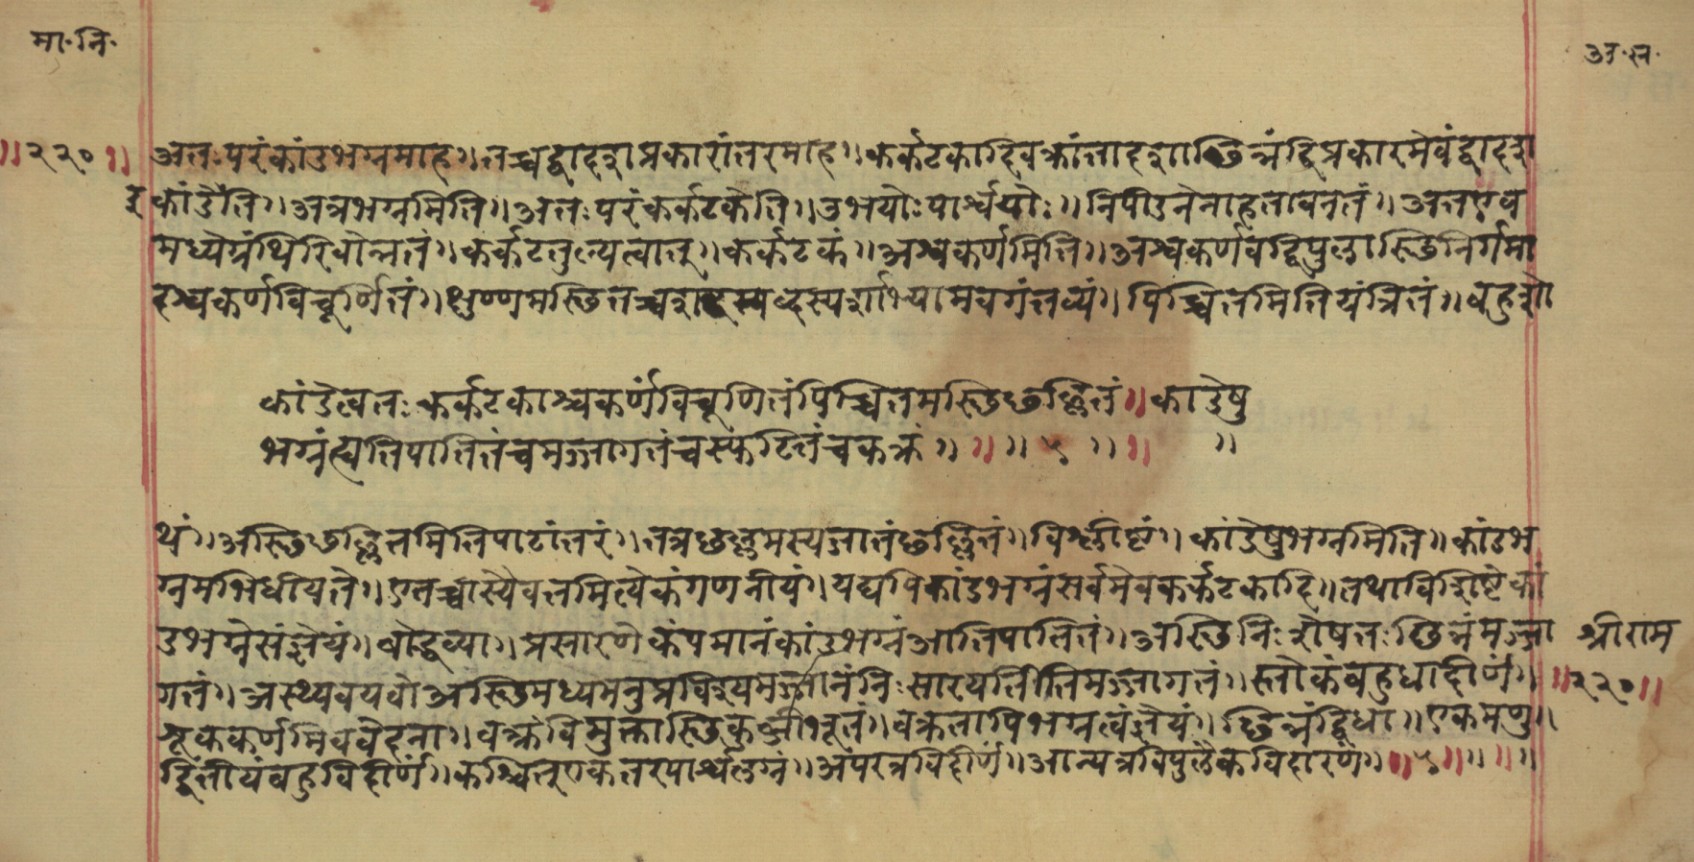 मा॰ नि॰
उ॰ ख॰
॥२२०॥ अतःपरंकांडभग्नमाह॥ तच्चद्वादशप्रकारांतरमाह॥ कर्कटकादिवक्रांतादशाछिन्नंद्विप्रकारमेवंद्वादश
कांडेति॥ अत्रभग्नमिति॥ अतःपरंकर्कटकेति॥ उभयोःपार्श्वयोः॥ निपीडनेनाहतावनतं॥ अतएव
मध्येग्रंथिरिवोन्नतं॥ कर्कटतुल्यत्वात्॥ कर्कटकं॥ अश्वकर्णमिति॥ अश्वकर्णवद्विपुलास्थिनिर्गमा
दश्वकर्णविचूर्णितं॥ क्षुण्णमस्थितच्चशब्दस्पर्शाभ्यामवगंतव्यं॥ पिच्चितमितियंत्रितं॥ बहुशो
कांडेत्वतःकर्कटकाश्वकर्णविचूर्णितंपिच्चितमस्थिछल्लितं॥ कांडेषु
भग्नंह्यतिपातितंचमज्जागतंचस्फटितंचवक्रं॥ ॥ ॥ ५ ॥ ॥ ॥
थं॥ अस्थिछल्लितमितिपाठांतरं॥ तत्रछल्लमस्यजातंछल्लितं॥ विश्लीष्टं॥ कांडेषुभग्नमिति॥ कांडभ
ग्नमभिधीयते॥ एतच्चास्यैवतमित्येकंगणनीयं॥ यद्यपिकांडभग्नंसर्वमेवकर्कटकादि॥ तथाविशिष्टेकां
डभग्नेसंज्ञेयं॥ बोद्धव्या॥ प्रसारणेकंपमानंकांडभग्नंआतिपातितं॥ अस्थिनिःशेषतःछिन्नंमज्जा
श्रीराम
गतं॥ अस्थ्यवयवोअस्थिमध्यमनुप्रविश्यमज्जानंनिःसारयतीतिमज्जागतं॥ स्तोकंबहुधादीर्णं॥ ॥२२०॥
शूककर्णमिववेदना॥ वक्रंविमुक्तास्थिकुब्जीभूतं॥ वक्रतापिभग्नत्वंज्ञेयं॥ छिन्नंद्विधा॥ एकमणु॥
द्वितीयंबहुविदीर्णं॥ कश्चित्एकतरपार्श्वलग्नं॥ अपरत्रविदीर्णं॥ आन्यत्रविपुलैकविदारणं॥ ॥५॥ ॥ ॥